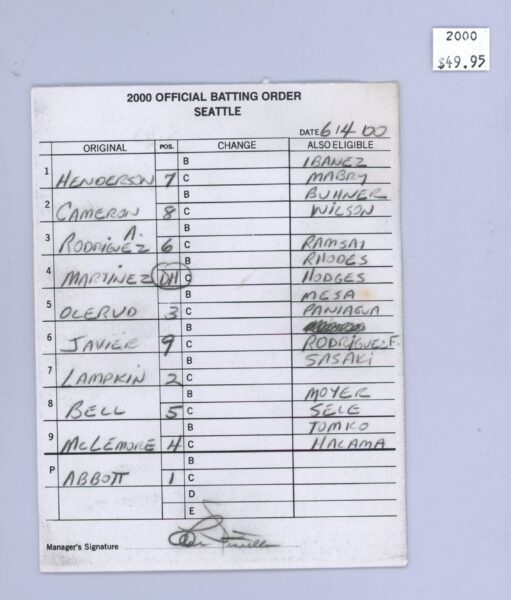 2000
$49.95
2000 OFFICIAL BATTING ORDER
SEATTLE
DATE 6/4 00
ORIGINAL POS. CHANGE ALSO ELIGIBLE
B IBANEZ
1 HENDERSON 7 C MABRY
B BUHNER
2 CAMERON 8 C WILSON
B
3 A. RODRIGUEZ 6 C RAMSAY
B RHODES
4 MARTINEZ DH C HODGES
B MESA
5 OLERUD 3 C PANIAGUA
B
6 JAVIER 9 C RODRIGUEZ F.
B SASAKI
7 LAMPKIN 2 C
B MOYER
8 BELL 5 C SELE
B TOMKO
9 McLEMORE 4 C HALAMA
B
P ABBOTT 1 C
D
E
Manager's Signature